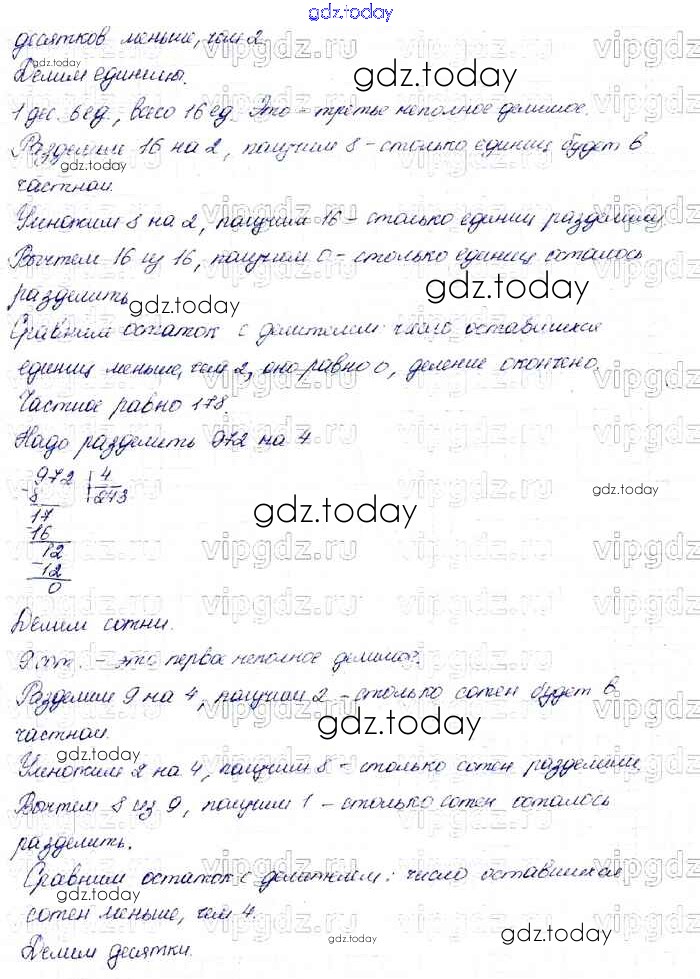 gdz.today
десятков меньше, чем 2
gdz.today
Делим единицы.
gdz.today
1 дес. 6 ед., всего 16 ед. Это - третье неполное делимое.
Разделим 16 на 2, получим 8 - столько единиц будет в
gdz.today
частном.
Умножим 8 на 2, получим 16 - столько единиц разделили
Вычтем 16 из 16, получим 0 - столько единиц осталось
gdz.today
разделить
gdz.today
Сравним остаток с делителем: число оставшихся
единиц меньше, чем 2, оно равно 0, деление окончено.
Частное равно 178.
Надо разделить 972 на 4
972 4
8 243
gdz.today
17
gdz.today
16
12
12
0
Делим сотни.
9 сот. - это первое неполное делимое.
Разделим 9 на 4, получим 2 - столько сотен будет в
gdz.today
частном.
gdz.today
Умножим 2 на 4, получим 8 - столько сотен разделили
Вычтем 8 из 9, получим 1 - столько сотен осталось
разделить.
Сравним остаток с делителем: число оставшихся
gdz.today
сотен меньше, чем 4.
gdz.today
gdz.today
Делим десятки.
vipgdz.ru